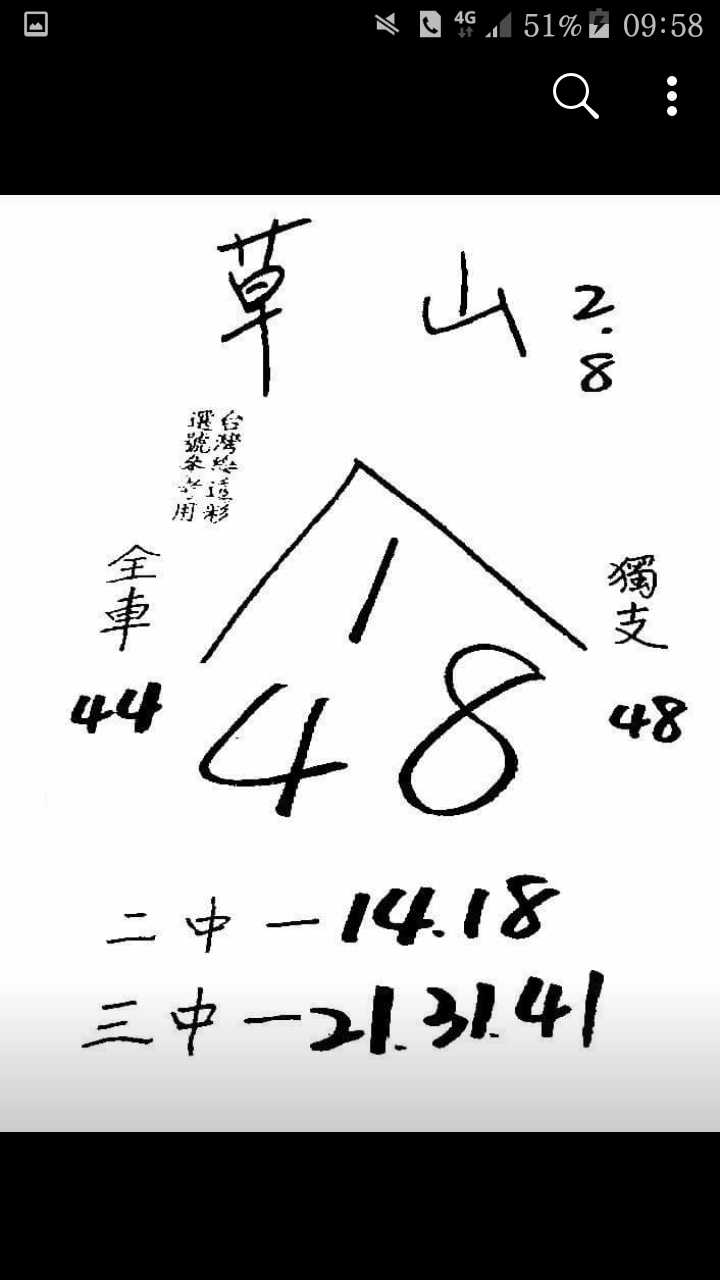 4G 51% 09:58
草山 2.8
台灣
選號參考用
全車
獨支
1
44
48
48
二中一14.18
三中一21.31.41